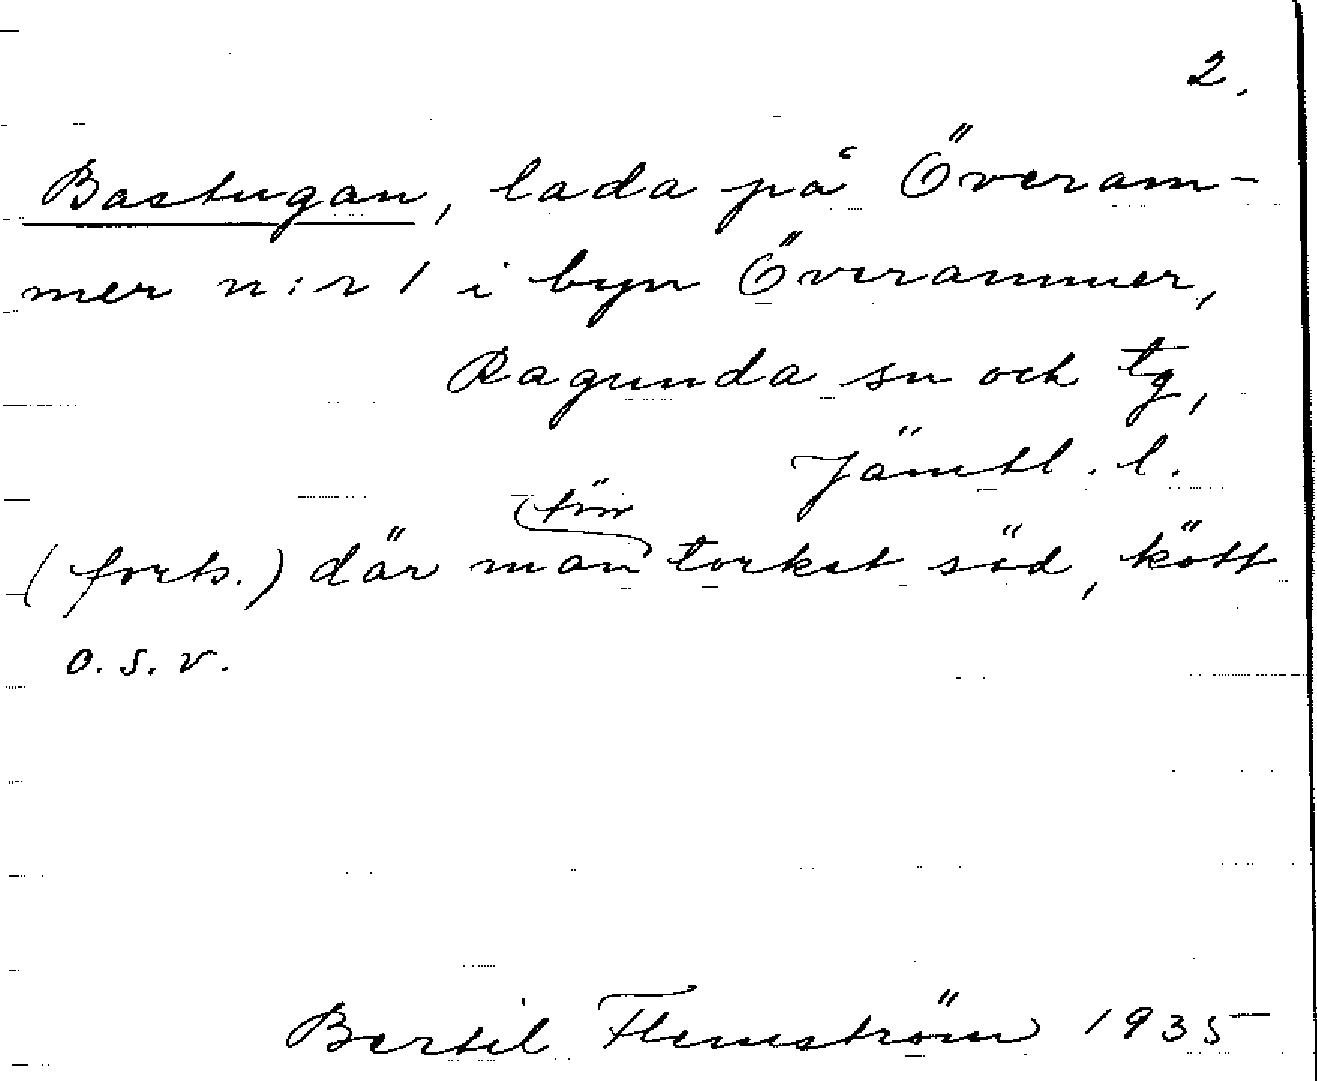 2.
Bastugan, lada på Överam-
mer n:r 1 i byn Överammer,
Ragunda sn och tg,
Jämtl. l.
förr
(forts.) där man torkat säd, kött
o.s.v.
Bertil Flemström 1935